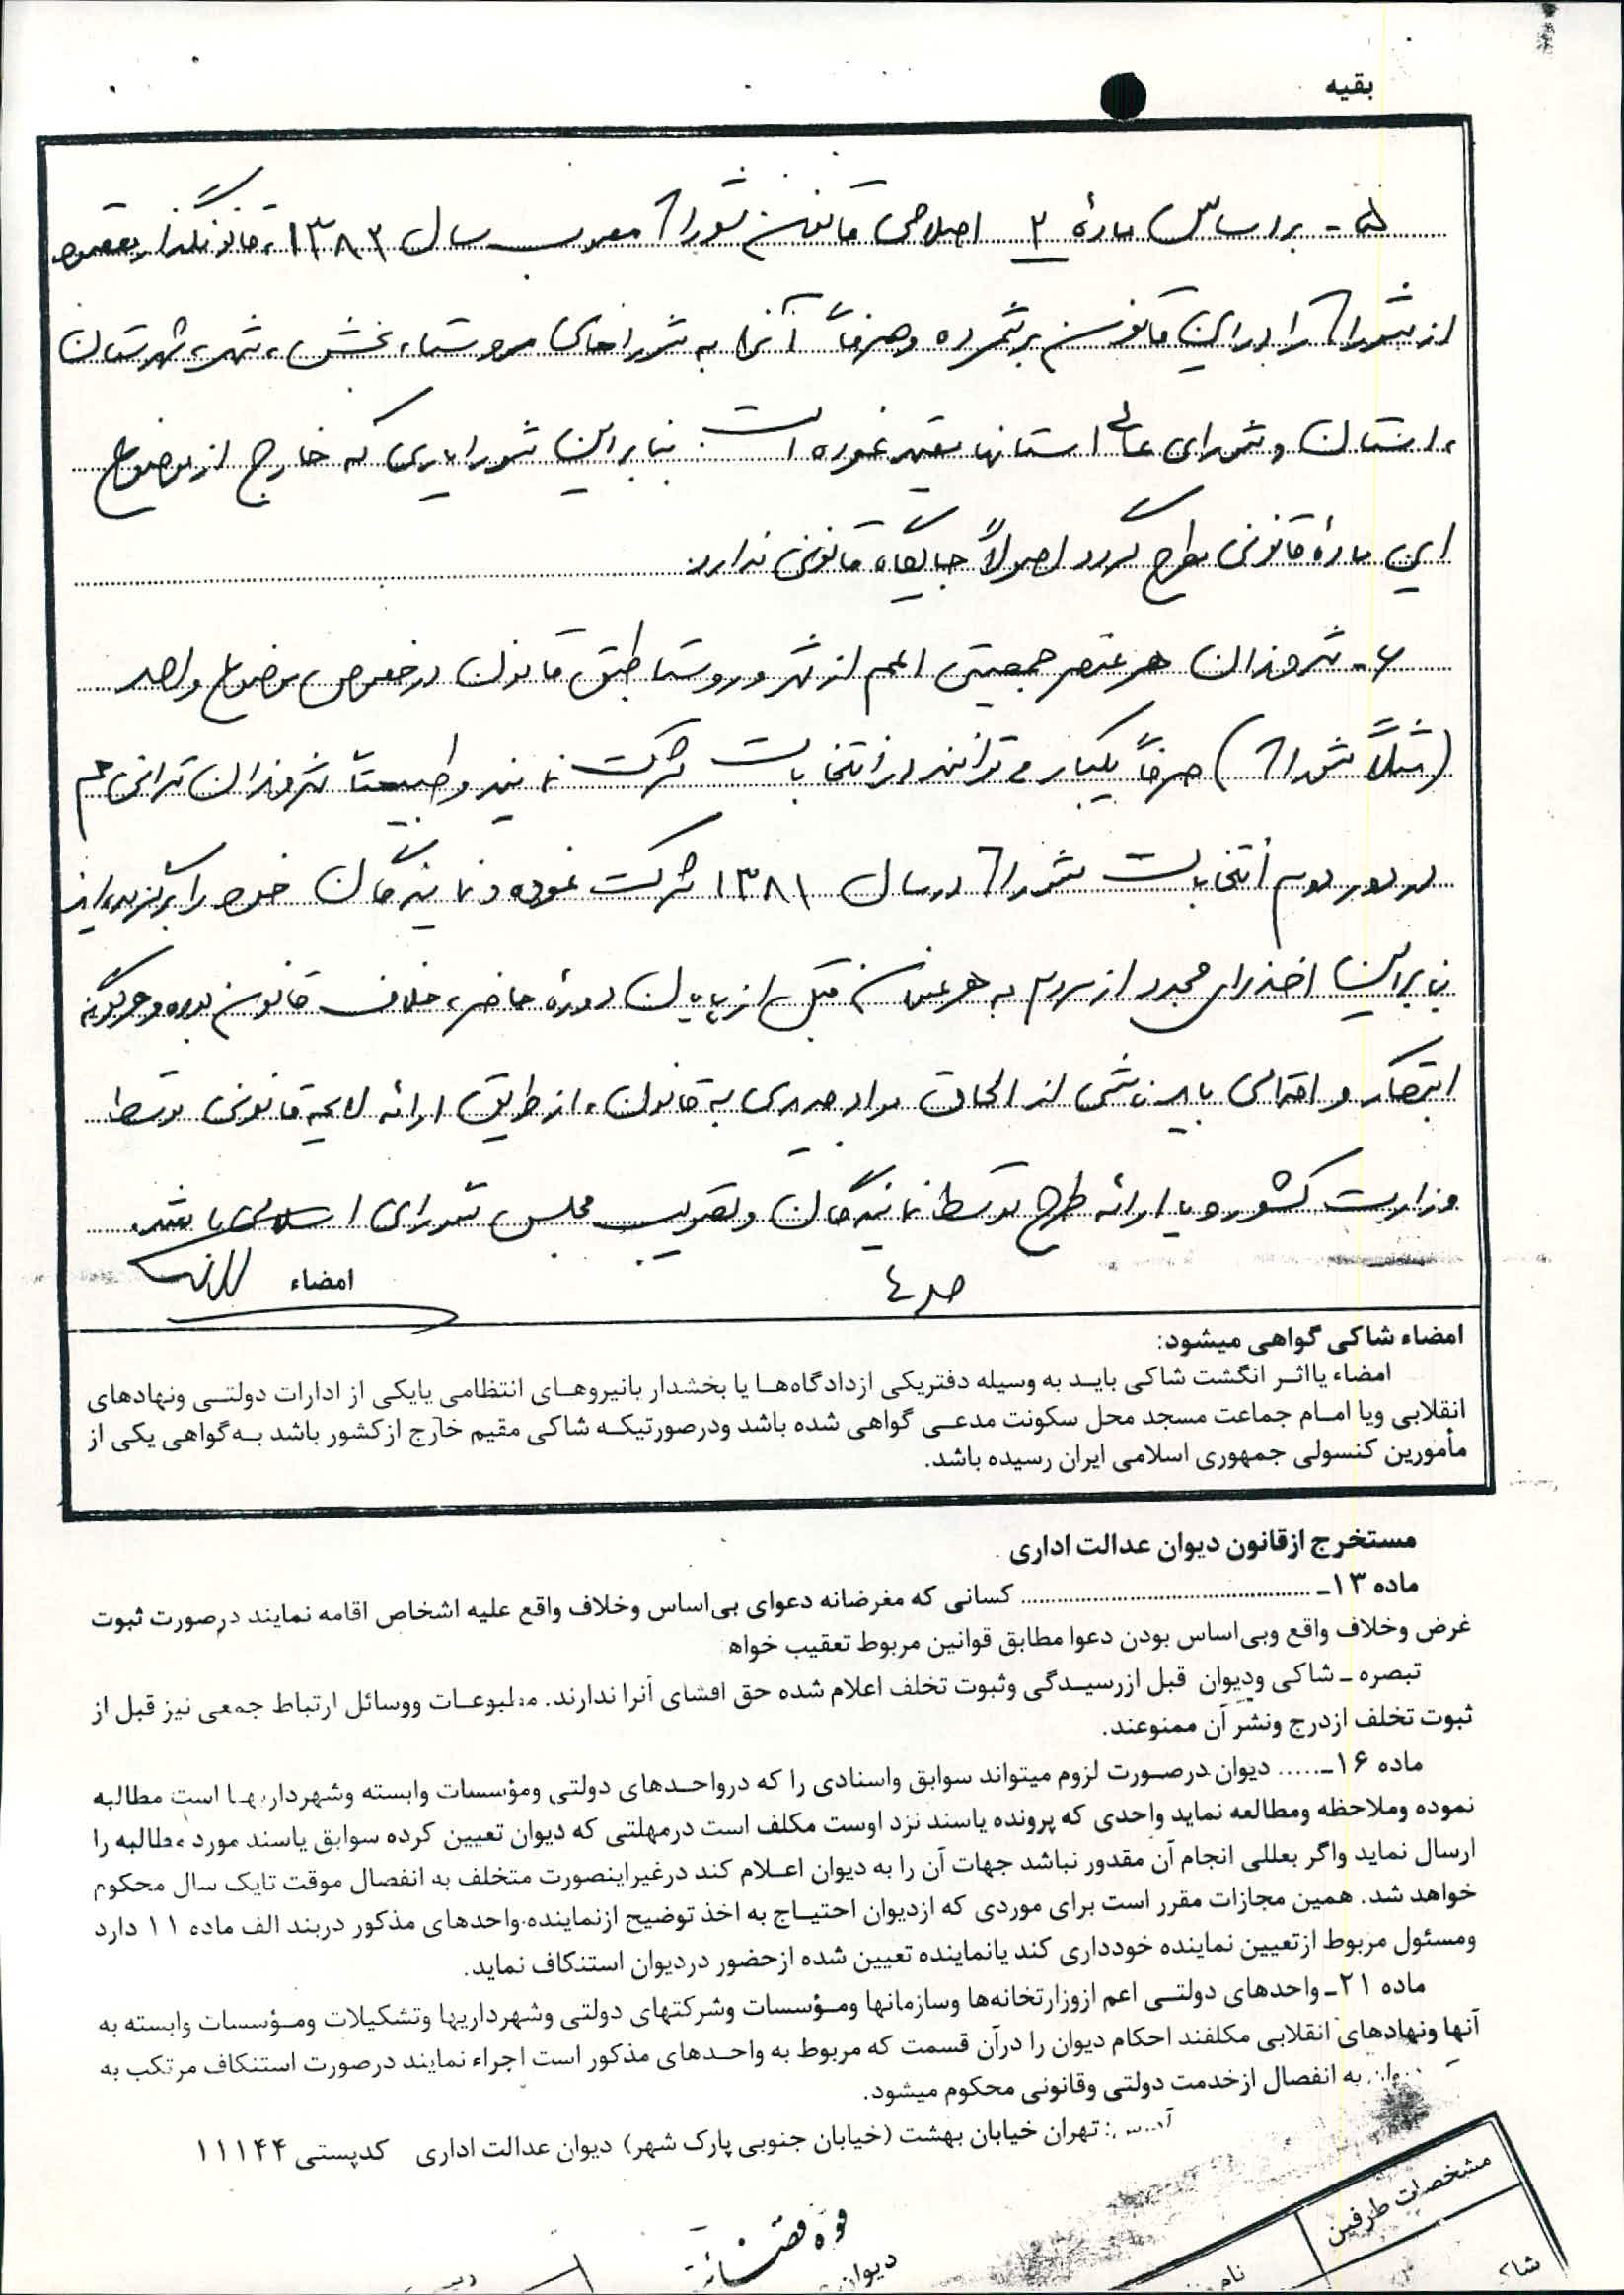 بقیه
۵- بر اساس مادهٔ ۲ اصلاحی قانون شوراها مصوب سال ۱۳۸۲، قانونگذار مقصود
از شوراها را در این قانون برشمرده و صرفاً آنرا به شوراهای روستا، بخش، شهر، شهرستان
، استان و شورای عالی استانها تعبیر نموده است. بنابراین شورایاری که خارج از موضوع
این مادهٔ قانونی مطرح گردد اصولاً جایگاه قانونی ندارد.
۶- شهروندان هر عنصر جمعیتی اعم از شهر و روستا طبق قانون در خصوص موضوع واحد
(مثلاً شوراها) صرفاً یکبار می توانند در انتخابات شرکت نمایند و طبیعتاً شهروندان تهرانی هم
در دور دوم انتخابات شوراها در سال ۱۳۸۱ شرکت نموده و نمایندگان خود را برگزیده‌اند
بنابراین اخذ رای مجدد از مردم به هر عنوان قبل از پایان دورهٔ حاضر، خلاف قانون بوده و هرگونه
ابتکار و اقدامی باید ناشی از الحاق مواد جدیدی به قانون، از طریق ارائه لایحه قانونی توسط
وزارت کشور و یا ارائه طرح توسط نمایندگان و تصویب مجلس شورای اسلامی باشد.
صـ ٤
امضاء
امضاء شاکی گواهی میشود:
امضاء یااثر انگشت شاکی باید به وسیله دفتریکی ازدادگاه‌ها یا بخشدار بانیروهای انتظامی یایکی از ادارات دولتی ونهادهای
انقلابی ویا امام جماعت مسجد محل سکونت مدعی گواهی شده باشد ودرصورتیکه شاکی مقیم خارج ازکشور باشد به گواهی یکی از
مأمورین کنسولی جمهوری اسلامی ایران رسیده باشد.
مستخرج ازقانون دیوان عدالت اداری
ماده ۱۳ـ ............ کسانی که مغرضانه دعوای بی‌اساس وخلاف واقع علیه اشخاص اقامه نمایند درصورت ثبوت
غرض وخلاف واقع وبی‌اساس بودن دعوا مطابق قوانین مربوط تعقیب خواه
تبصره ـ شاکی ودیوان قبل ازرسیدگی وثبوت تخلف اعلام شده حق افشای آنرا ندارند. مطبوعات ووسائل ارتباط جمعی نیز قبل از
ثبوت تخلف ازدرج ونشر آن ممنوعند.
ماده ۱۶ـ..... دیوان درصورت لزوم میتواند سوابق واسنادی را که درواحدهای دولتی ومؤسسات وابسته وشهرداریها است مطالبه
نموده وملاحظه ومطالعه نماید واحدی که پرونده یاسند نزد اوست مکلف است درمهلتی که دیوان تعیین کرده سوابق یاسند مورد مطالبه را
ارسال نماید واگر بعللی انجام آن مقدور نباشد جهات آن را به دیوان اعلام کند درغیراینصورت متخلف به انفصال موقت تایک سال محکوم
خواهد شد. همین مجازات مقرر است برای موردی که ازدیوان احتیاج به اخذ توضیح ازنماینده واحدهای مذکور دربند الف ماده ۱۱ دارد
ومسئول مربوط ازتعیین نماینده خودداری کند یانماینده تعیین شده ازحضور دردیوان استنکاف نماید.
ماده ۲۱ـ واحدهای دولتی اعم ازوزارتخانه‌ها وسازمانها ومؤسسات وشرکتهای دولتی وشهرداریها وتشکیلات ومؤسسات وابسته به
آنها ونهادهای انقلابی مکلفند احکام دیوان را درآن قسمت که مربوط به واحدهای مذکور است اجراء نمایند درصورت استنکاف مرتکب به
به انفصال ازخدمت دولتی وقانونی محکوم میشود.
آدرس: تهران خیابان بهشت (خیابان جنوبی پارک شهر) دیوان عدالت اداری کدپستی ۱۱۱۴۴
مشخصات طرفین
قوه قضائیه
دیوان
نام
شاکی